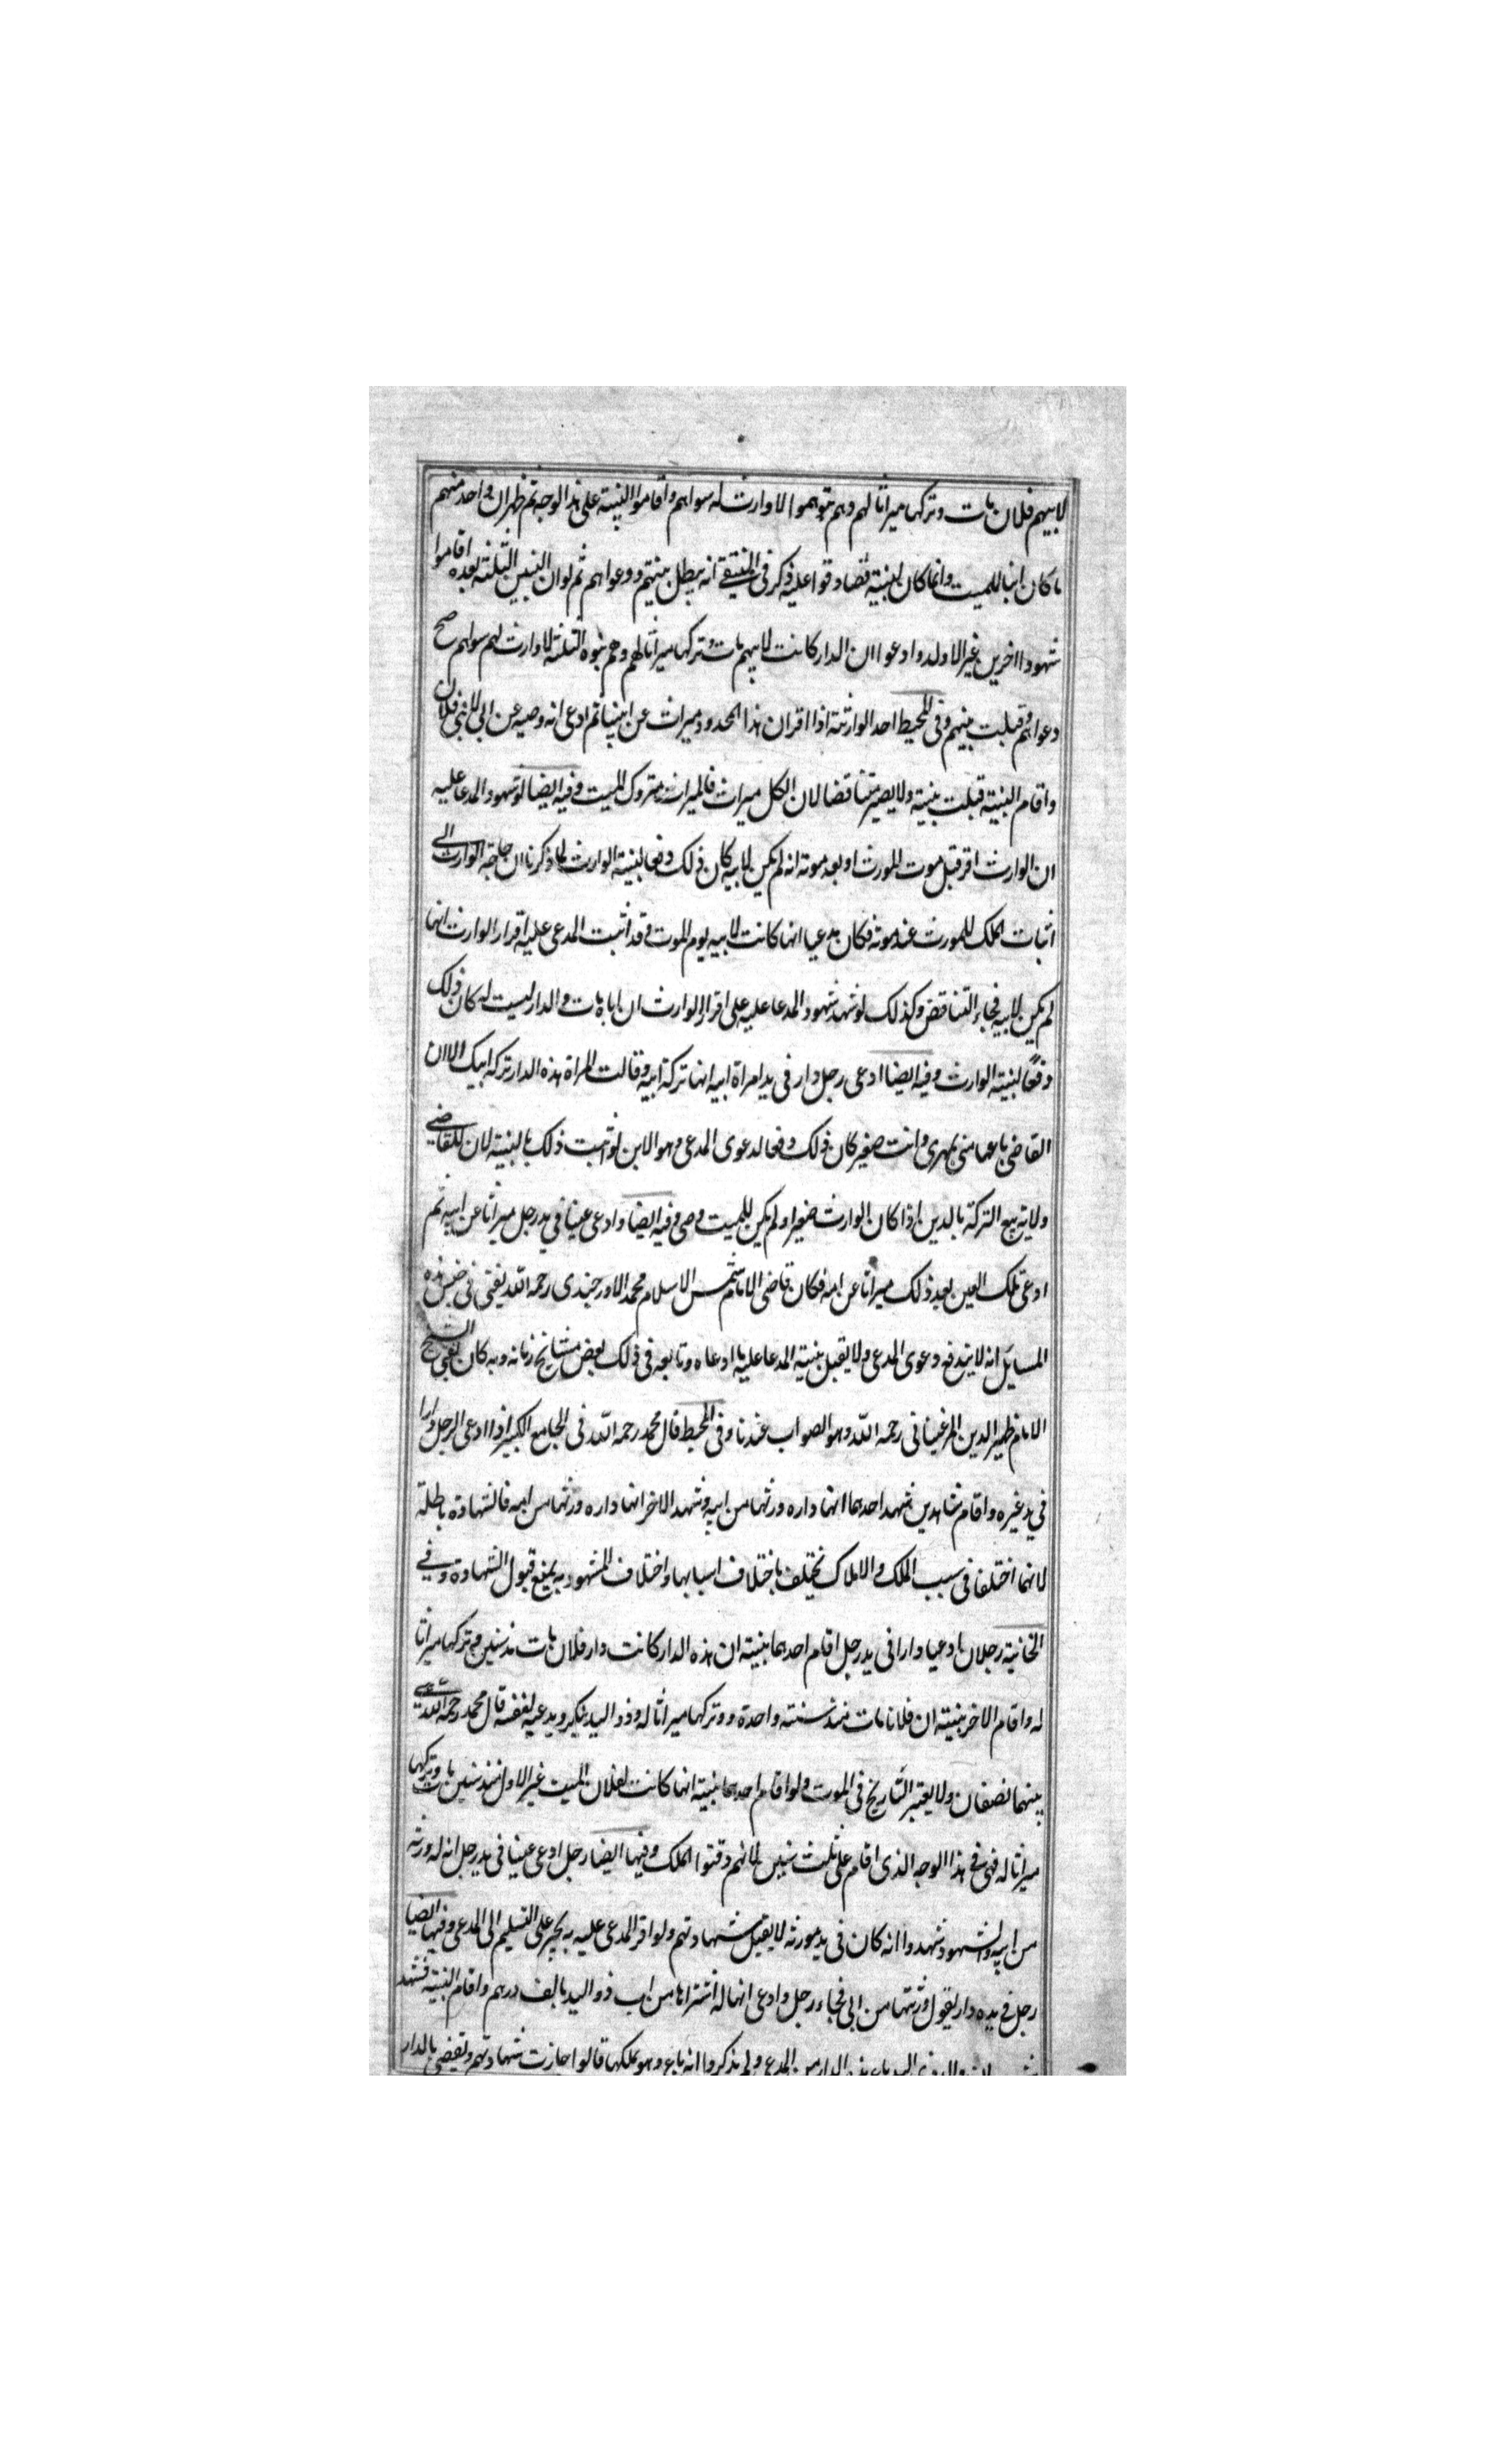 لابيهم فلان مات وتركها ميراثا لهم وهم بنوه لا وارث له سواهم واقاموا البينة على هذا الوجه ثم ظهر ان واحد منهم
ما كان ابنا للميت وانما كان لبنيته فتصادقوا عليه ذكر في المنتقى انه يبطل بينتهم ودعواهم ثم لو ان البنين الثلثة بعده اقاموا
شهودا اخرين غير الاول وادعوا ان الدار كانت لابيهم مات وتركها ميراثا لهم وهم بنوه الثلثة لا وارث لهم سواهم صح
دعواهم وقبلت بينهم وفي المحيط احد الوارثة اذا اقر ان هذا المحدود ميراث عن ابينا ثم ادعى انه وصيه عن ابي لابني فلان
واقام البينة قبلت بينته ولا يصير متناقضا لان الكل ميراث فالميراث متروك الميت وفيه ايضا لو شهود المدعا عليه
ان الوارث اقر قبل موت المورث او بعد موته انه لم يكن لابيه كان ذلك دفعا لبينة الوارث لما ذكرنا ان حاجة الوارث الى
اثبات الملك للمورث عند موته فكان مدعيا انها كانت لابيه يوم الموت وقد اثبت المدعى عليه اقرار الوارث انها
لم يكن لابيه فجاء التناقض وكذلك لو شهد شهود المدعا عليه على اقرار الوارث ان اباه مات والدار ليست له كان ذلك
دفعًا لبينة الوارث وفيه ايضا ادعى رجل دار في يد امراة ابيه انها تركة ابيه وقالت المراة هذه الدار تركه ابيك الا ان
القاضي باعها مني بمهري وانت صغير كان ذلك دفعا لدعوى المدعي وهو الابن لو اثبت ذلك بالبينة لان للقاضي
ولاية بيع التركة بالدين اذا كان الوارث صغيرا ولم يكن للميت وصي وفيه ايضا وادعى عينا في يد رجل ميراثا عن ابيه ثم
ادعى تلك العين بعد ذلك ميراثا عن امه فكان قاضي الامام شمس الاسلام محمد الاورجندى رحمه الله يفتي في جنس هذه
المسايل انه لا يندفع دعوى المدعي ولا يقبل بينة المدعا عليه ما ادعاه وتابعه في ذلك بعض مشايخ زمانه وبه كان يفتي الشيخ
الامام ظهير الدين المرغيناني رحمه الله وهو الصواب عندنا وفي المحيط قال محمد رحمه الله في الجامع الكبير اذا ادعى الرجل دارا
في يد غيره واقام شاهدين شهد احدهما انها داره ورثها من ابيه وشهد الاخر انها داره ورثها من امه فالشهادة باطلة
لانهما اختلفا في سبب الملك والاملاك تختلف باختلاف اسبابها واختلاف المشهود به يمنع قبول الشهادة وفي
الخانية رجلان ادعيا دارا في يد رجل اقام احدهما بينة ان هذه الدار كانت دار فلان مات منذ سنين وتركها ميراثا
له واقام الاخر بينة ان فلانا مات منذ سنة واحدة وتركها ميراثا له وذو اليد ينكر ويدعيه لنفسه قال محمد رحمه الله يقضى
بينهما نصفان ولا يعتبر التاريخ في الموت ولو اقام احدهما بينة انها كانت لفلان الميت غير الاول منذ سنين مات وتركها
ميراثا له فهي في هذا الوجه الذي اقام على ثلث سنين لانهم وقتوا الملك وفيها ايضا رجل ادعى عينا في يد رجل انه له ورثه
من ابيه والشهود شهدوا انه كان في يد مورثه لا يقبل شهادتهم ولو اقر المدعى عليه به يجبر على التسليم الى المدعي وفيها ايضا
رجل في يده دار يقول ورثتها من ابي فجاء رجل وادعى انها له اشتراها من اب ذو اليد بالف درهم واقام البينة فشهد
اليد باع هذه الدار من المدعي ولم يذكروا انه باع وهو يملكها قالوا جازت شهادتهم ويقضى بالدار